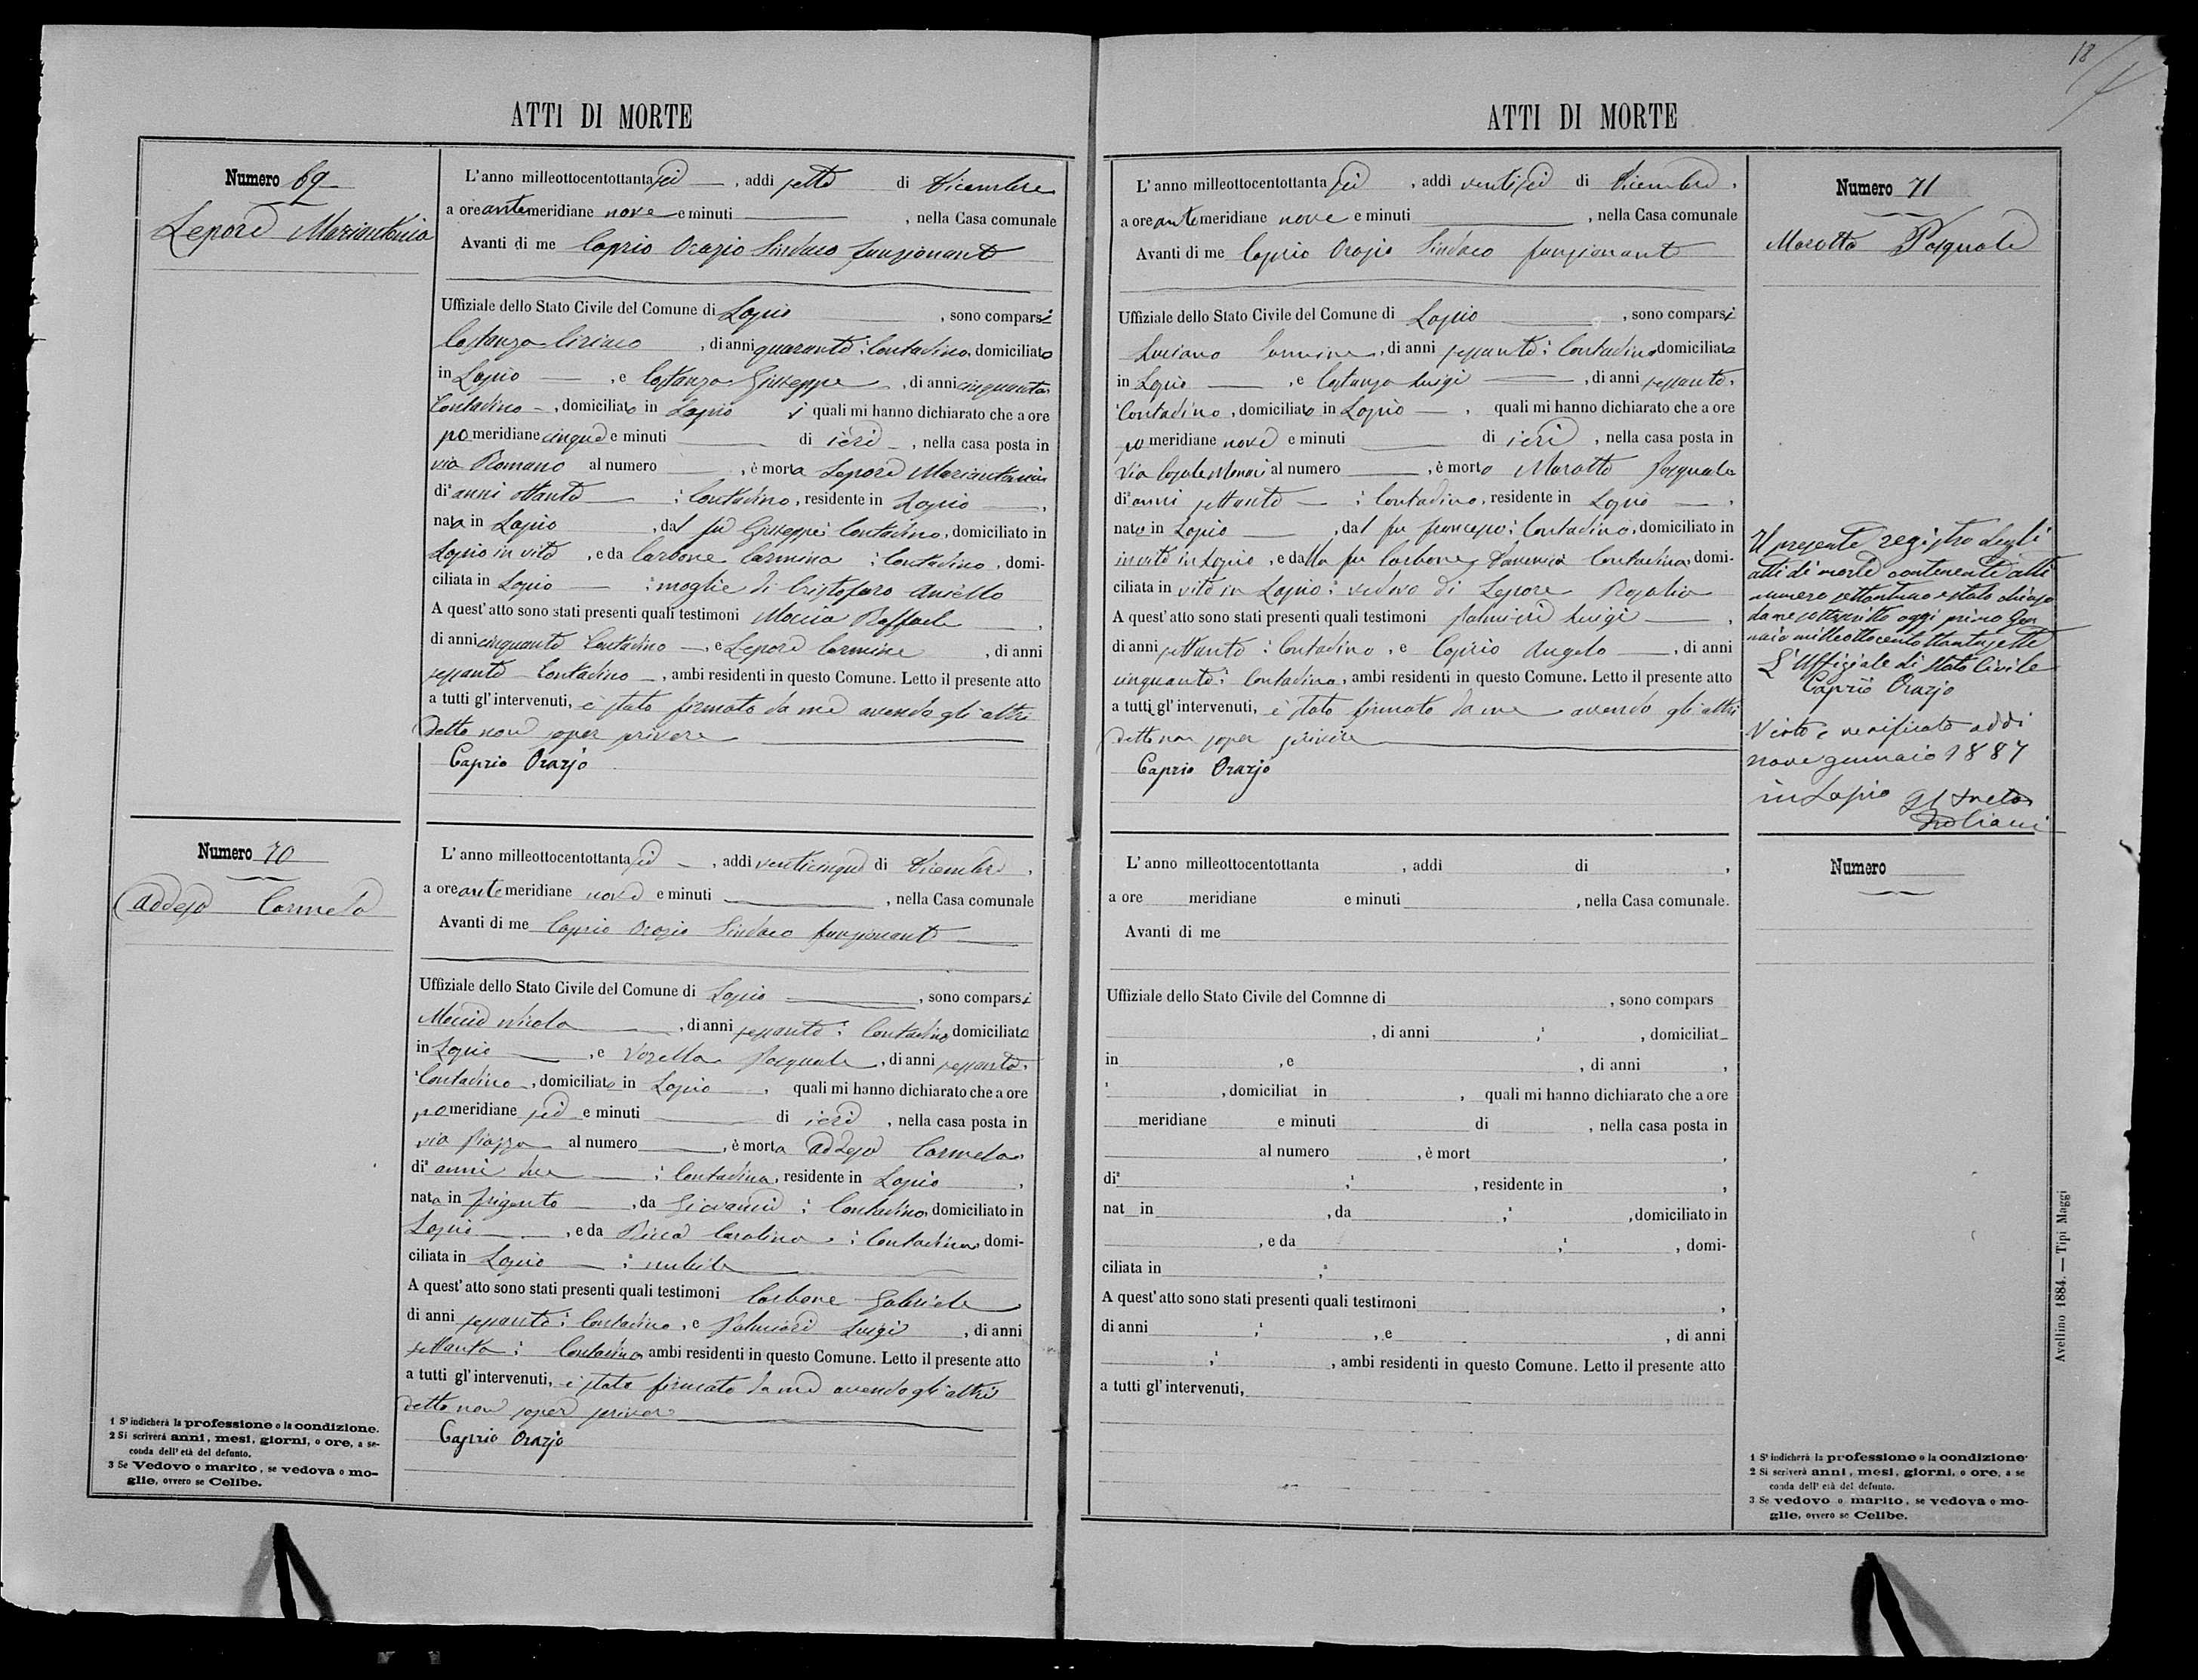 ATTI DI MORTE
Numero 69
Lepore Mariantonia
L'anno milleottocentottantasei, addi sette di Dicembre
a ore antemeridiane nove e minuti , nella Casa comunale
Avanti di me Caprio Orazio Sindaco funzionante
Uffiziale dello Stato Civile del Comune di Lapio , sono comparsi
Costanza Ciriaco , di anni quaranta; Contadino, domiciliato
in Lapio , e Costanza Giuseppe , di anni cinquanta
Contadino , domiciliato in Lapio i quali mi hanno dichiarato che a ore
pomeridiane cinque e minuti di ieri , nella casa posta in
via Romano al numero , è morta Lepore Mariantonia
di² anni ottanta ; Contadina, residente in Lapio ,
nata in Lapio , dal fu Giuseppe; Contadino, domiciliato in
Lapio in vita , e da Carbone Carmina ; Contadina , domi-
ciliata in Lapio ; moglie di Cristofaro Aniello
A quest'atto sono stati presenti quali testimoni Moccia Raffaele ,
di anni cinquanta Contadino , e Lepore Carmine , di anni
sessanta Contadino , ambi residenti in questo Comune. Letto il presente atto
a tutti gl'intervenuti, è stato firmato da me avendo gli altri
detto non saper scrivere
Caprio Orazio
Numero 70
Addeso Carmela
L'anno milleottocentottantasei , addi venticinque di Dicembre ,
a ore antemeridiane nove e minuti , nella Casa comunale
Avanti di me Caprio Orazio Sindaco funzionante
Uffiziale dello Stato Civile del Comune di Lapio , sono comparsi
Moccia Nicola , di anni sessanta; Contadino domiciliato
in Lapio , e Vozella Pasquale , di anni sessanta,
Contadino , domiciliato in Lapio , quali mi hanno dichiarato che a ore
pomeridiane sei e minuti di ieri , nella casa posta in
via Piazza al numero , è morta Addeso Carmela
di² anni due ; Contadina, residente in Lapio ,
nata in Frigento , da Giovanni ; Contadino, domiciliato in
Lapio , e da Ricca Carolina ; Contadina, domi-
ciliata in Lapio ; nubile
A quest'atto sono stati presenti quali testimoni Carbone Gabriele
di anni sessanta; Contadino , e Palmieri Luigi , di anni
settanta; Contadino, ambi residenti in questo Comune. Letto il presente atto
a tutti gl'intervenuti, è stato firmato da me avendo gli altri
detto non saper scrivere
Caprio Orazio
1 S'indicherà la professione o la condizione.
2 Si scriverà anni, mesi, giorni, o ore, a se-
conda dell'età del defunto.
3 Se Vedovo o marito, se vedova o mo-
glie, ovvero se Celibe.
18
ATTI DI MORTE
L'anno milleottocentottanta sei , addi ventisei di Dicembre ,
a ore antemeridiane nove e minuti , nella Casa comunale
Avanti di me Caprio Orazio Sindaco funzionante
Uffiziale dello Stato Civile del Comune di Lapio , sono comparsi
Luciano Carmine, di anni sessanta; Contadino domiciliato
in Lapio , e Costanza Luigi , di anni sessanta,
Contadino , domiciliato in Lapio , quali mi hanno dichiarato che a ore
pomeridiane nove e minuti di ieri , nella casa posta in
Via al numero , è morto Marotta Pasquale
di² anni settanta ; Contadino, residente in Lapio ,
nato in Lapio , dal fu Francesco; Contadino, domiciliato in
in vita in Lapio , e dalla fu Carbone Domenica Contadina, domi-
ciliata in vita in Lapio; vedovo di Lepore Rosalia
A quest'atto sono stati presenti quali testimoni Palmieri Luigi ,
di anni settanta; Contadino , e Caprio Angelo , di anni
cinquanta; Contadino, ambi residenti in questo Comune. Letto il presente atto
a tutti gl'intervenuti, è stato firmato da me avendo gli altri
detto non saper scrivere
Caprio Orazio
Numero 71
Marotta Pasquale
Il presente registro degli
atti di morte contenente atti
numero settantuno è stato chiuso
da me sottoscritto oggi primo Gen
naio milleottocentottantasette
L'Uffiziale di Stato Civile
Caprio Orazio
Visto e verificato addi
nove gennaio 1887
in Lapio
L'anno milleottocentottanta , addi di ,
a ore meridiane e minuti , nella Casa comunale.
Avanti di me
Uffiziale dello Stato Civile del Comnne di , sono compars
, di anni ; , domiciliat
in , e , di anni ,
¹ , domiciliat in , quali mi hanno dichiarato che a ore
meridiane e minuti di , nella casa posta in
al numero , è mort ,
di² ; , residente in ,
nat in , da ; , domiciliato in
, e da ; , domi-
ciliata in ;³
A quest'atto sono stati presenti quali testimoni ,
di anni ; , e , di anni
; , ambi residenti in questo Comune. Letto il presente atto
a tutti gl'intervenuti,
Numero
1 S'indicherà la professione o la condizione.
2 Si scriverà anni, mesi, giorni, o ore, a se
conda dell'età del defunto.
3 Se vedovo o marito, se vedova o mo-
glie, ovvero se Celibe.
Avellino 1884. — Tipi Maggi